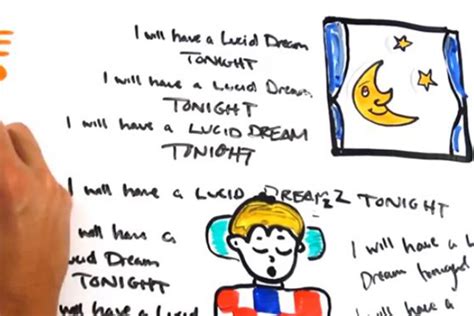 I will have a Lucid Dream
TONIGHT
I will have a Lucid Dream
TONIGHT
I will have a LUCID DREAM
TONIGHT
I will have a LUCID DREAM zZ TONIGHT
will have a
ucid Dream
TONIGHT
will have a Lucid
I will have a L
Dream tonight
I will have a